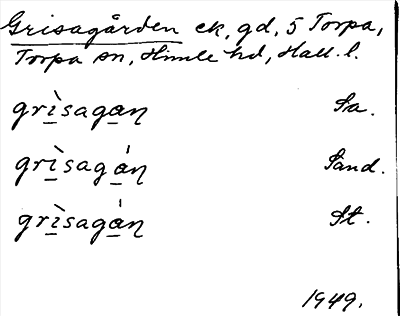 Grisagården ek, gd, 5 Torpa,
Torpa sn, Himle hd, Hall. l.
grìsagan Sa.
grìsagán Sand.
grìsagán St.
1949.